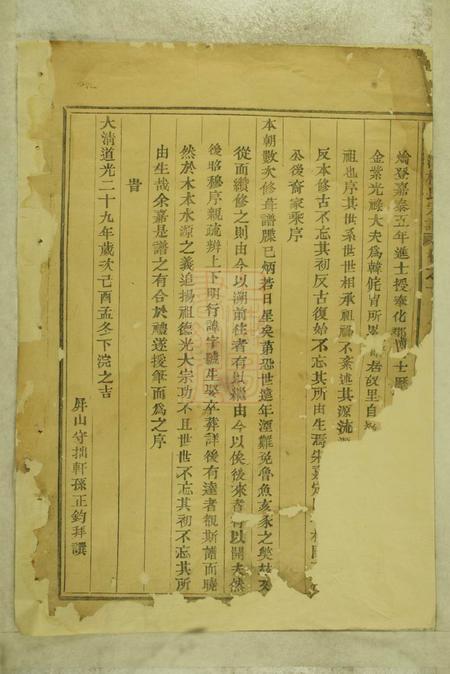 爚登嘉泰五年進士授奉化郡博士歷
金紫光祿大夫爲韓侂胄所
祖也序其世系世世相承祖禰不紊述其源流
反本修古不忘其初反古復始不忘其所由生焉宋嘉定
公後裔家乘序
本朝數次修葺譜牒已炳若日星矣第恐世遠年湮難免魯魚亥豕之笑故
從而續修之則由今以溯前往者有以繼由今以俟後來者有以開夫然
後昭穆序親疏辨上下明行諱字號生娶卒葬詳後有達者觀斯譜而曉
然於木本水源之義追揚祖德光大宗功不且世世不忘其初不忘其所
由生哉余嘉是譜之有合於禮遂授筆而爲之序
旹
大清道光二十九年歲次己酉孟冬下浣之吉
屏山守拙軒孫正鈞拜譔